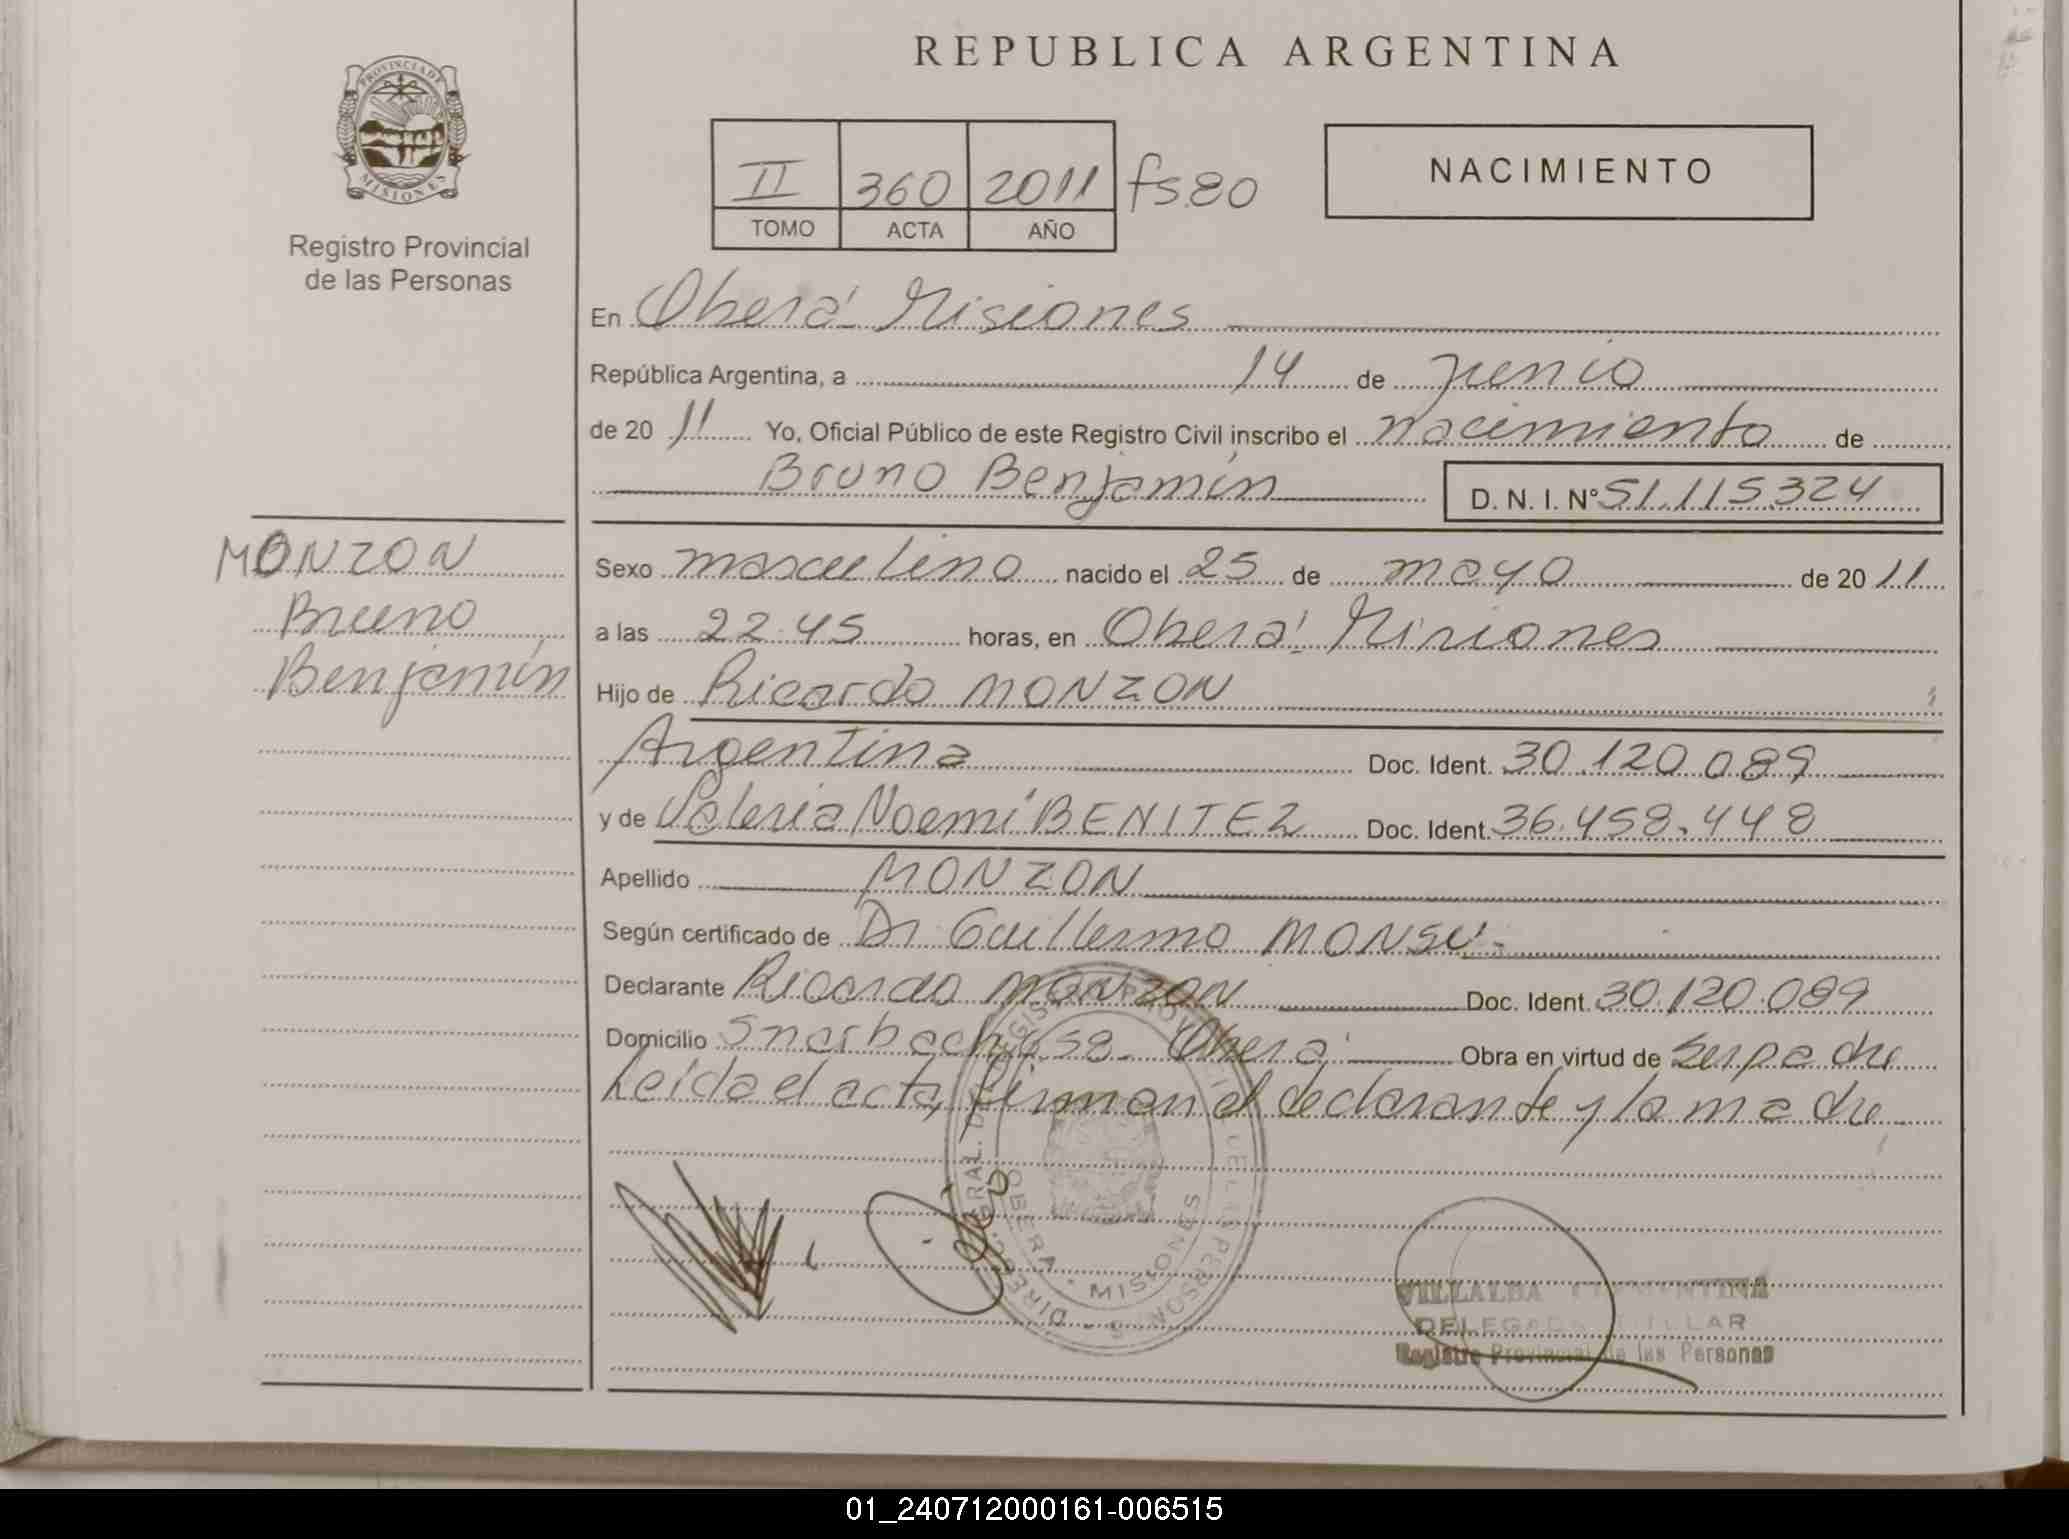 REPUBLICA ARGENTINA
PROVINCIA DE
MISIONES
Registro Provincial
de las Personas
II 360 2011 fs.80
TOMO ACTA AÑO
NACIMIENTO
En Oberá Misiones
República Argentina, a 14 de junio
de 20 11 Yo, Oficial Público de este Registro Civil inscribo el nacimiento de
Bruno Benjamín D. N. I. N° 51.115.324
MONZON
Bruno
Benjamín
Sexo masculino nacido el 25 de mayo de 20 11
a las 22:45 horas, en Oberá Misiones
Hijo de Ricardo MONZON
Argentina Doc. Ident. 30.120.089
y de Valeria Noemí BENITEZ Doc. Ident. 36.458.448
Apellido MONZON
Según certificado de Dr Guillermo MONSU
Declarante Ricardo MONZON Doc. Ident. 30.120.089
Domicilio Oberá Obra en virtud de Ser padre
Leída el acta, firman el declarante y la madre
OBERA - MISIONES
VILLALBA
Registro Provincial de las Personas
01_240712000161-006515